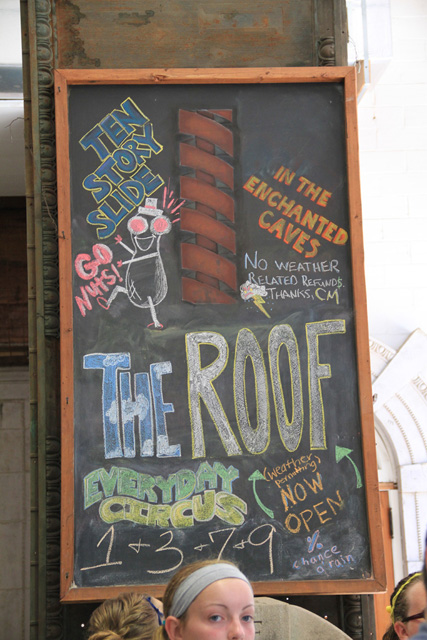 TEN
STORY
SLIDE
GO
NUTS!
IN THE
ENCHANTED
CAVES
NO WEATHER
RELATED REFUNDS.
THANKS, CM
THE ROOF
(weather
permitting)
NOW
OPEN
EVERYDAY
CIRCUS
1 + 3 + 7 + 9
% chance o' rain